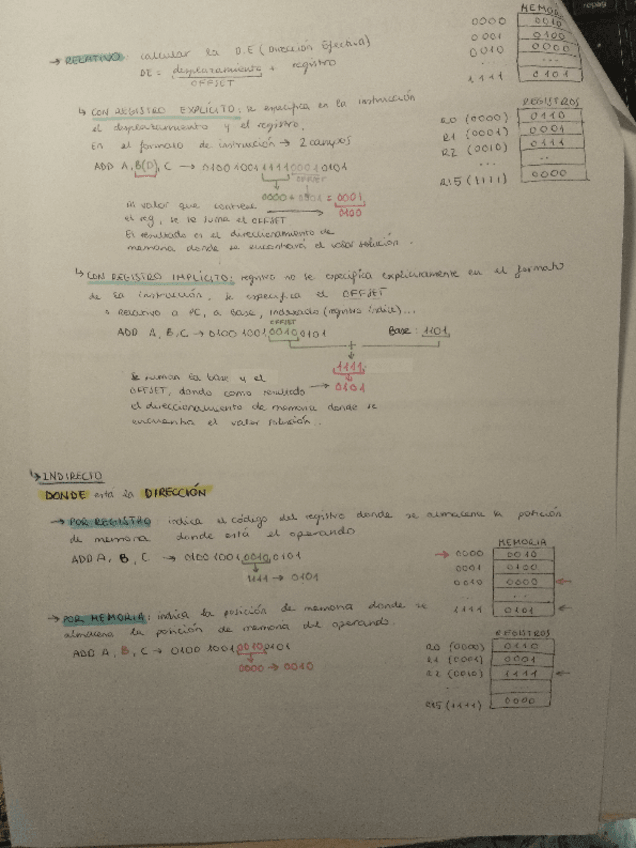 MEMORIA
0000 0010
0001 0100
0010 0000
... ...
1111 0101
→ RELATIVO: calcular la D.E (Dirección Efectiva)
DE = desplazamiento + registro
OFFSET
REGISTROS
R0 (0000) 0110
R1 (0001) 0001
R2 (0010) 1111
... ..
R15 (1111) 0000
↳ CON REGISTRO EXPLÍCITO: se especifica en la instrucción
el desplazamiento y el registro.
En el formato de instrucción → 2 campos
ADD A, B(D), C → 0100 1001 1111 0001 0101
OFFSET
0000 + 0001 = 0001
0100
Al valor que contiene
el reg, se le suma el OFFSET
El resultado es el direccionamiento de
memoria donde se encontrará el valor solución.
↳ CON REGISTRO IMPLÍCITO: registro no se especifica explícitamente en el formato
de la instrucción. Se especifica el OFFSET
Relativo a PC, a base, indexado (registro índice)...
OFFSET
ADD A, B, C → 0100 1001 0010 0101 Base: 1101
+
1111
Se suman la base y el
OFFSET, dando como resultado → 0101
el direccionamiento de memoria donde se
encuentra el valor solución..
↳ INDIRECTO
DONDE está la DIRECCIÓN
→ POR REGISTRO: indica el código del registro donde se almacena la posición
de memoria donde está el operando
ADD A, B, C → 0100 1001 0010 0101
1111 → 0101
MEMORIA
→ 0000 0010
0001 0100
0010 0000 ←
... ...
1111 0101 ←
→ POR MEMORIA: indica la posición de memoria donde se
almacena la posición de memoria del operando.
ADD A, B, C → 0100 1001 0010 0101
0000 → 0010
REGISTROS
R0 (0000) 0110
R1 (0001) 0001
R2 (0010) 1111 ←
...
R15 (1111) 0000